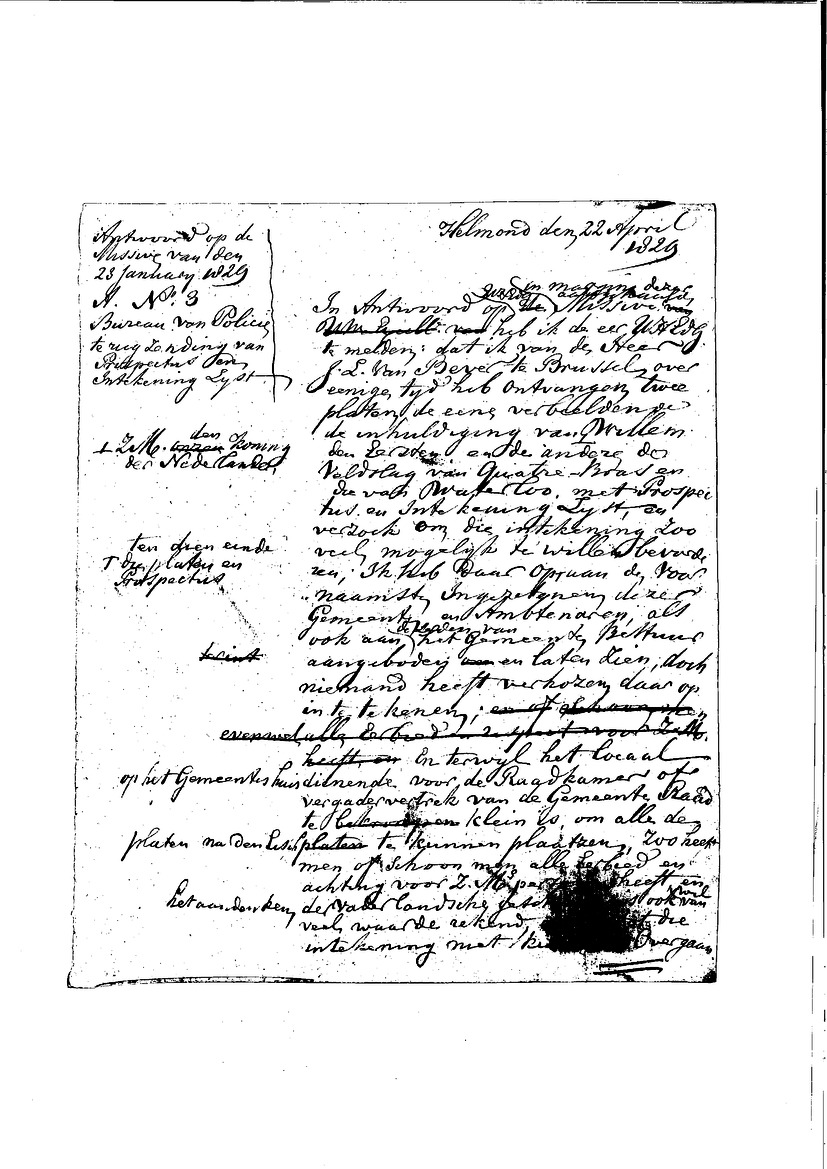 Helmond den 22 April
1829
Antwoord op de
Missive van den
23 January 1829
A. No. 3
Bureau van Policie
terugzending van
Prospectus en
Intekening Lyst
In Antwoord op de Missive van
heb ik de eer UWEdg
te melden: dat ik van de Heer
J. L. Van Bever te Brussel, over
eenige tyd heb ontvangen twee
platen, de eene verbeeldende
de inhuldiging van Willem
den Eersten en de andere de
Veldslag van Quatre-Bras en
die van Waterloo, met Prospec
tus en Intekening Lyst, en
verzoek om die intekening zoo
veel mogelijk te willen bevorde
ren; Ik heb daar op aan de Voor
naamste Ingezetenen dezer
Gemeente en Ambtenaren, als
ook aan de leden van het Gemeente Bestuur
aangeboden en laten zien, doch
niemand heeft verkozen daar op
in te tekenen; en of schoon men
evenwel alle Eerbied en respect voor Z. M.
heeft, en En terwyl het locaal
dienende voor de Raadkamer of
vergadervertrek van de Gemeente Raad
te klein is, om alle de
platen te kunnen plaatzen, Zoo heeft
men of schoon men alle eerbied en
achting voor Z. M. heeft en
der vaderlandsche ook van
veel waarde rekend, die
intekening niet Overgaan
Z. M. den onzen Koning
der Nederlanden
ten dien einde
die platen en
Prospectus
op het Gemeentehuis
platen na den Eisch
het aandenken